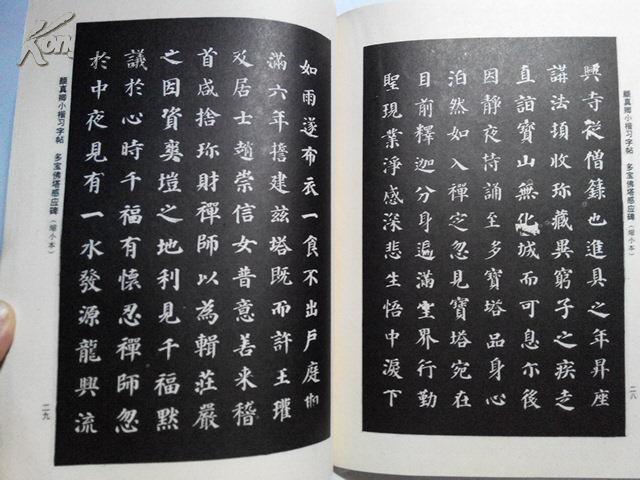 颜真卿小楷习字帖 多宝佛塔感应碑（缩小本）
二八
興寺從僧籙也進具之年昇座
講法頓收珎藏異窮子之疾走
直詣寶山無化城而可息尒後
因静夜持誦至多寶塔品身心
泊然如入禪定忽見寶塔宛在
目前釋迦分身遍滿空界行勤
聖現業淨感深悲生悟中淚下
如雨遂布衣一食不出戶庭期
滿六年誓建兹塔既而許王瓘
及居士趙崇信女普意善来稽
首咸捨珎財禪師以為輯莊嚴
之因資爽塏之地利見千福黙
議於心時千福有懷忍禪師忽
於中夜見有一水發源龍興流
颜真卿小楷习字帖 多宝佛塔感应碑（缩小本）
二九